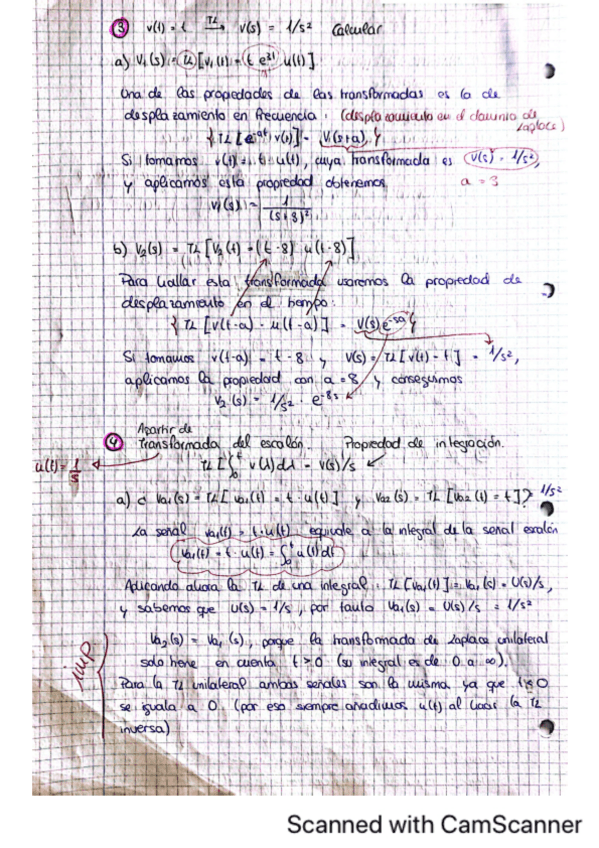 ③ v(t) = t —TL→ V(s) = 1/s² Calcular
a) V₁(s) = TL [v₁(t) = t e^3t u(t)]
Una de las propiedades de las transformadas es la de
desplazamiento en frecuencia: (desplazamiento en el dominio de
Laplace)
{ TL [e^-at v(t)] = V(s+a) }
Si tomamos v(t) = t · u(t), cuya transformada es V(s) = 1/s²,
y aplicamos esta propiedad obtenemos a = 3
V₁(s) = 1/(s+3)²
b) V₂(s) = TL [V₂(t) = (t-8) u(t-8)]
Para hallar esta transformada usaremos la propiedad de
desplazamiento en el tiempo:
{ TL [v(t-a) · u(t-a)] = V(s) e^-sa }
Si tomamos v(t-a) = t-8 y V(s) = TL [v(t) = t] = 1/s²,
aplicamos la propiedad con a = 8 y conseguimos
V₂(s) = 1/s² · e^-8s
Apartir de
④ Transformada del escalón. Propiedad de integración.
u(t) = 1/s TL [∫₀ᵗ v(λ)dλ = V(s)/s
a) ¿ Va₁(s) = TL [ va₁(t) = t · u(t)] y Va₂(s) = TL [va₂(t) = t]? 1/s²
La señal va₁(t) = t · u(t) equivale a la integral de la señal escalón
va₁(t) = t · u(t) = ∫₀ᵗ u(t)dt
Aplicando ahora la TL de una integral: TL [va₁(t)] = Va₁(s) = U(s)/s,
y sabemos que U(s) = 1/s, por tanto Va₁(s) = U(s)/s = 1/s²
Va₂(s) = Va₁(s), porque la transformada de Laplace unilateral
solo tiene en cuenta t > 0 (su integral es de 0 a ∞).
imp.
Para la TL unilateral ambas señales son la misma ya que t<0
se iguala a 0. (por eso siempre añadimos u(t) al hacer la TL
inversa)
Scanned with CamScanner